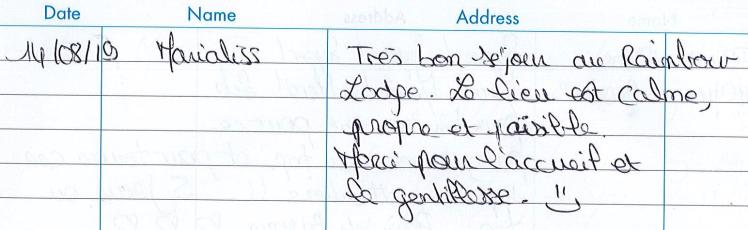 Date Name Address
14/08/19 Marialiss Très bon séjour au Rainbow
Lodge. Le lieu est calme,
propre et paisible.
Merci pour l'accueil et
la gentillesse. "